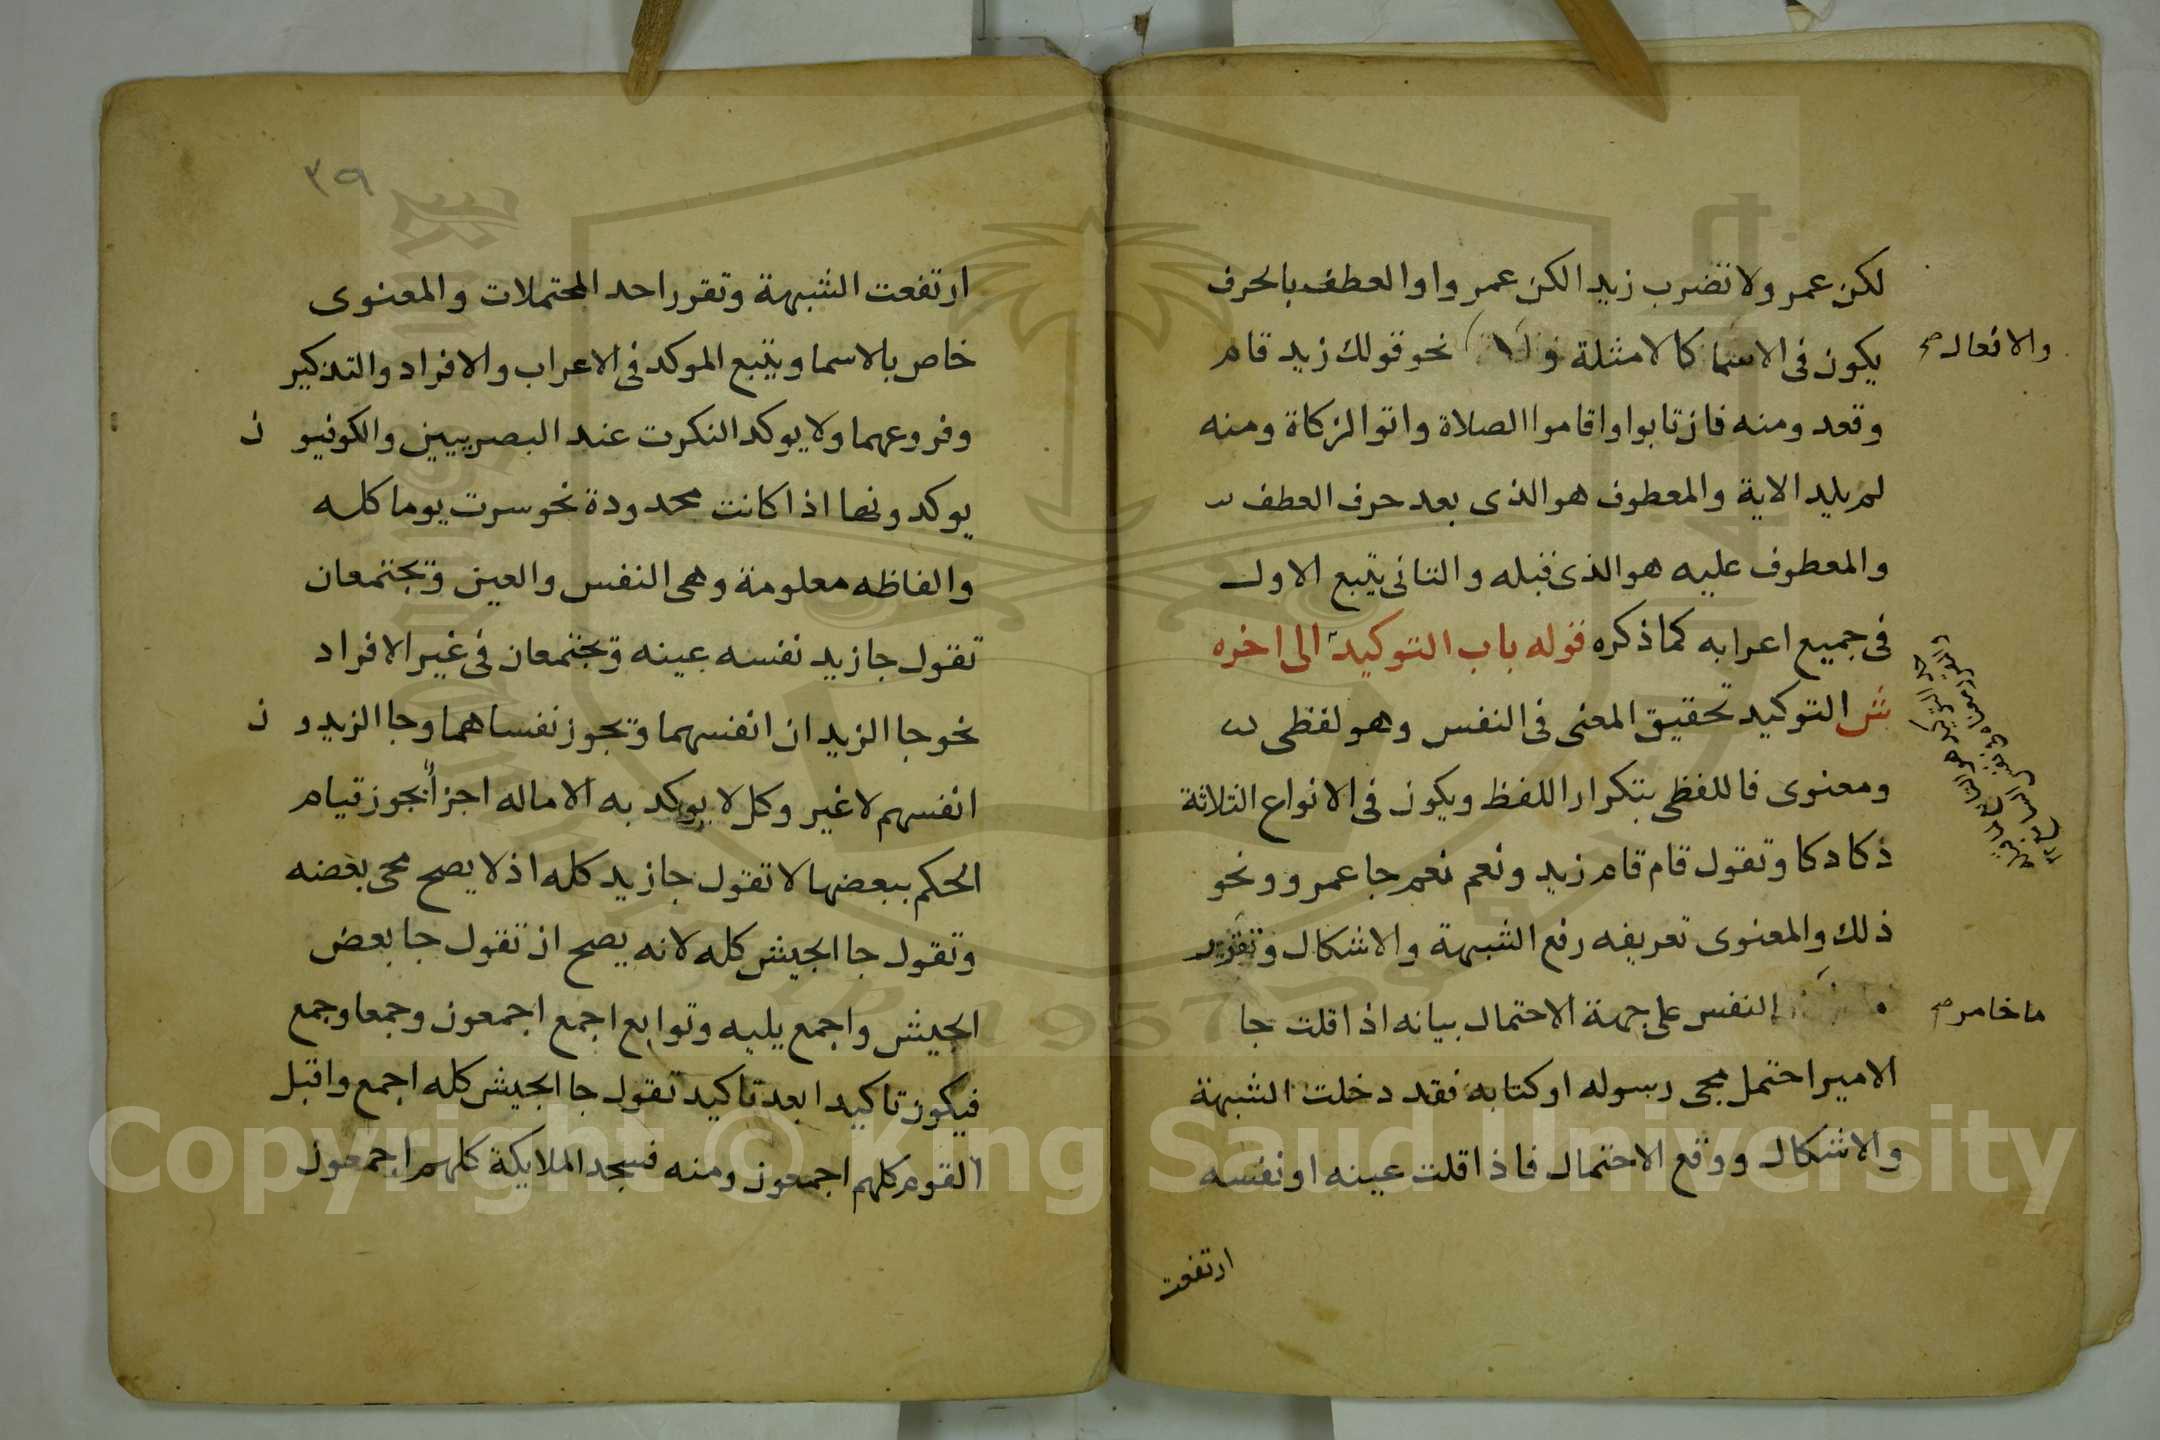 لكن عمر ولا تضرب زيدا لكن عمر واوا لعطف بالحرف
يكون فى الاسما كالامثلة نحو قولك زيد قام
والافعال صح
وقعد ومنه فان تابوا واقاموا الصلاة واتوا الزكاة ومنه
لم يلد الاية والمعطوف هو الذى بعد حرف العطف
والمعطوف عليه هو الذى قبله والثانى يتبع الاول
فى جميع اعرابه كما ذكره قوله باب التوكيد الى اخره
ش التوكيد تحقيق المعنى فى النفس وهو لفظى
ومعنوى فاللفظى بتكرار اللفظ ويكون فى الانواع الثلاثة
دكا دكا وتقول قام قام زيد ونعم نعم جا عمرو ونحو
ذلك والمعنوى تعريفه رفع الشبهة والاشكال وتقرير
النفس على جهة الاحتمال بيانه اذا قلت جا
ما خامر صح
الامير احتمل مجى رسوله او كتابه فقد دخلت الشبهة
والاشكال ووقع الاحتمال فاذا قلت عينه او نفسه
ارتفعت
٣٩
ارتفعت الشبهة وتقرر احد المحتملات والمعنوى
خاص بالاسما ويتبع الموكد فى الاعراب والافراد والتدكير
وفروعهما ولا يوكد النكرت عند البصريين والكوفيو ن
يوكدونها اذا كانت محدودة نحو سرت يوما كله
والفاظه معلومة وهى النفس والعين وتجتمعان
تقول جا زيد نفسه عينه وتجتمعان فى غير الافراد
نحو جا الزيدان انفسهما وتجوز نفساهما وجا الزيدو ن
انفسهم لا غير وكل لا يوكد به الا ماله اجزاً يجوز قيام
الحكم ببعضها لا تقول جا زيد كله اذ لا يصح مجى بعضه
وتقول جا الجيش كله لانه يصح ان تقول جا بعض
الجيش واجمع يليه وتوابع اجمع اجمعون وجمعا وجمع
فيكون تاكيدا بعد تاكيد تقول جا الجيش كله اجمع واقبل
القوم كلهم اجمعون ومنه فسجد الملايكة كلهم اجمعون
Copyright © King Saud University
1957